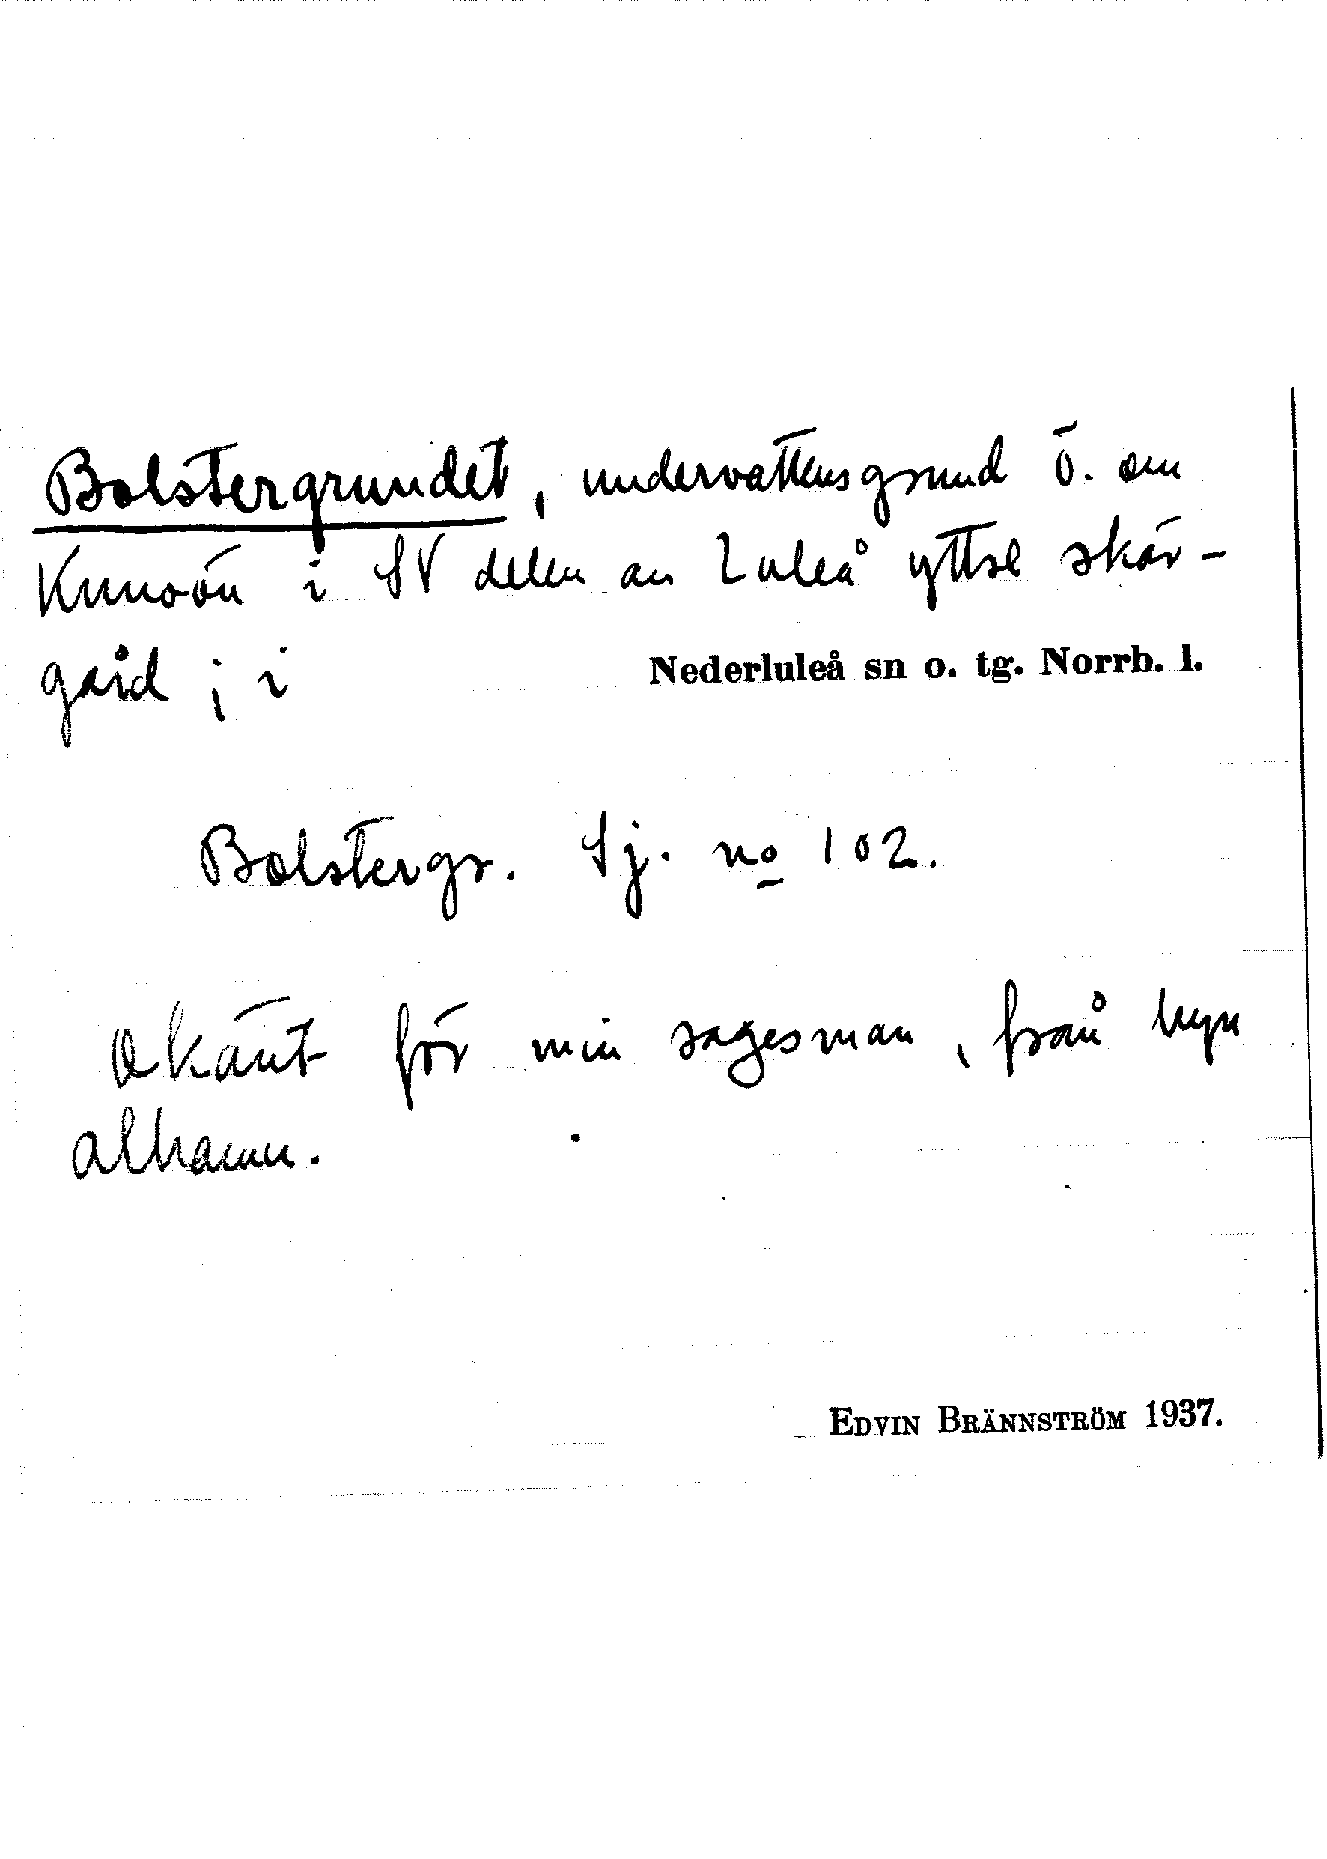 Bolstergrundet, undervattensgrund Ö. om
Kunoön i SV delen av Luleå yttre skär-
gård ; i Nederluleå sn o. tg. Norrb. l.
Bolstergr. Sj. no 102.
Okänt för min sagesman, från byn
Alhamn.
EDVIN BRÄNNSTRÖM 1937.